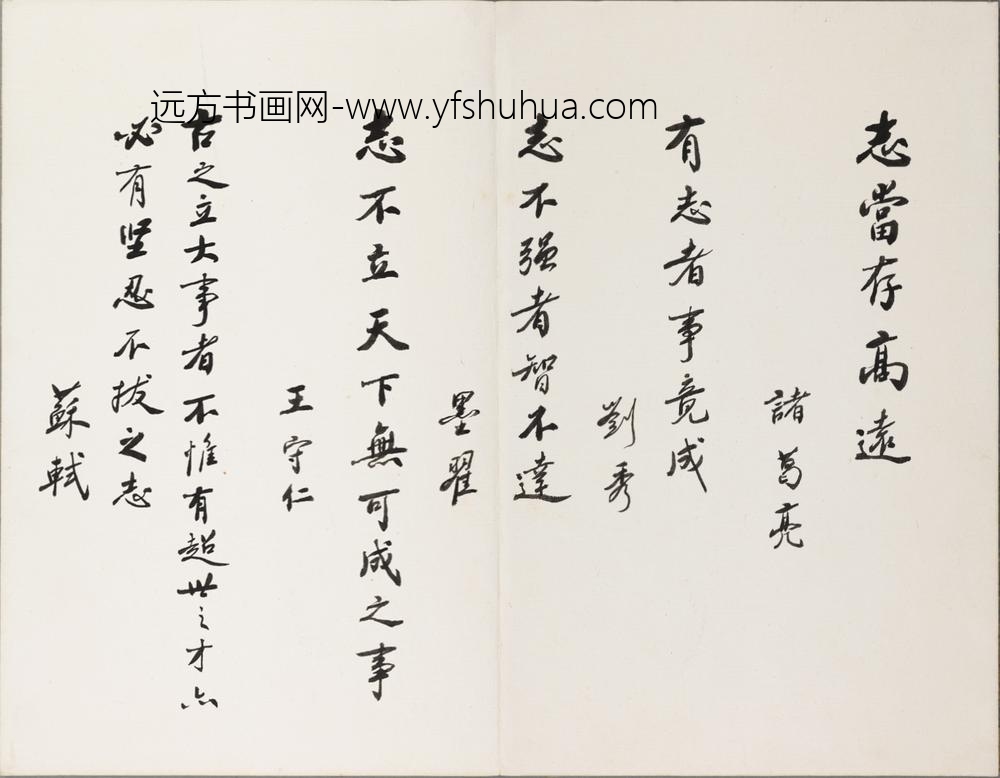 远方书画网-www.yfshuhua.com
志當存高遠
諸葛亮
有志者事竟成
劉秀
志不强者智不達
墨翟
志不立天下無可成之事
王守仁
古之立大事者不惟有超世之才亦
必有坚忍不拔之志
蘇軾